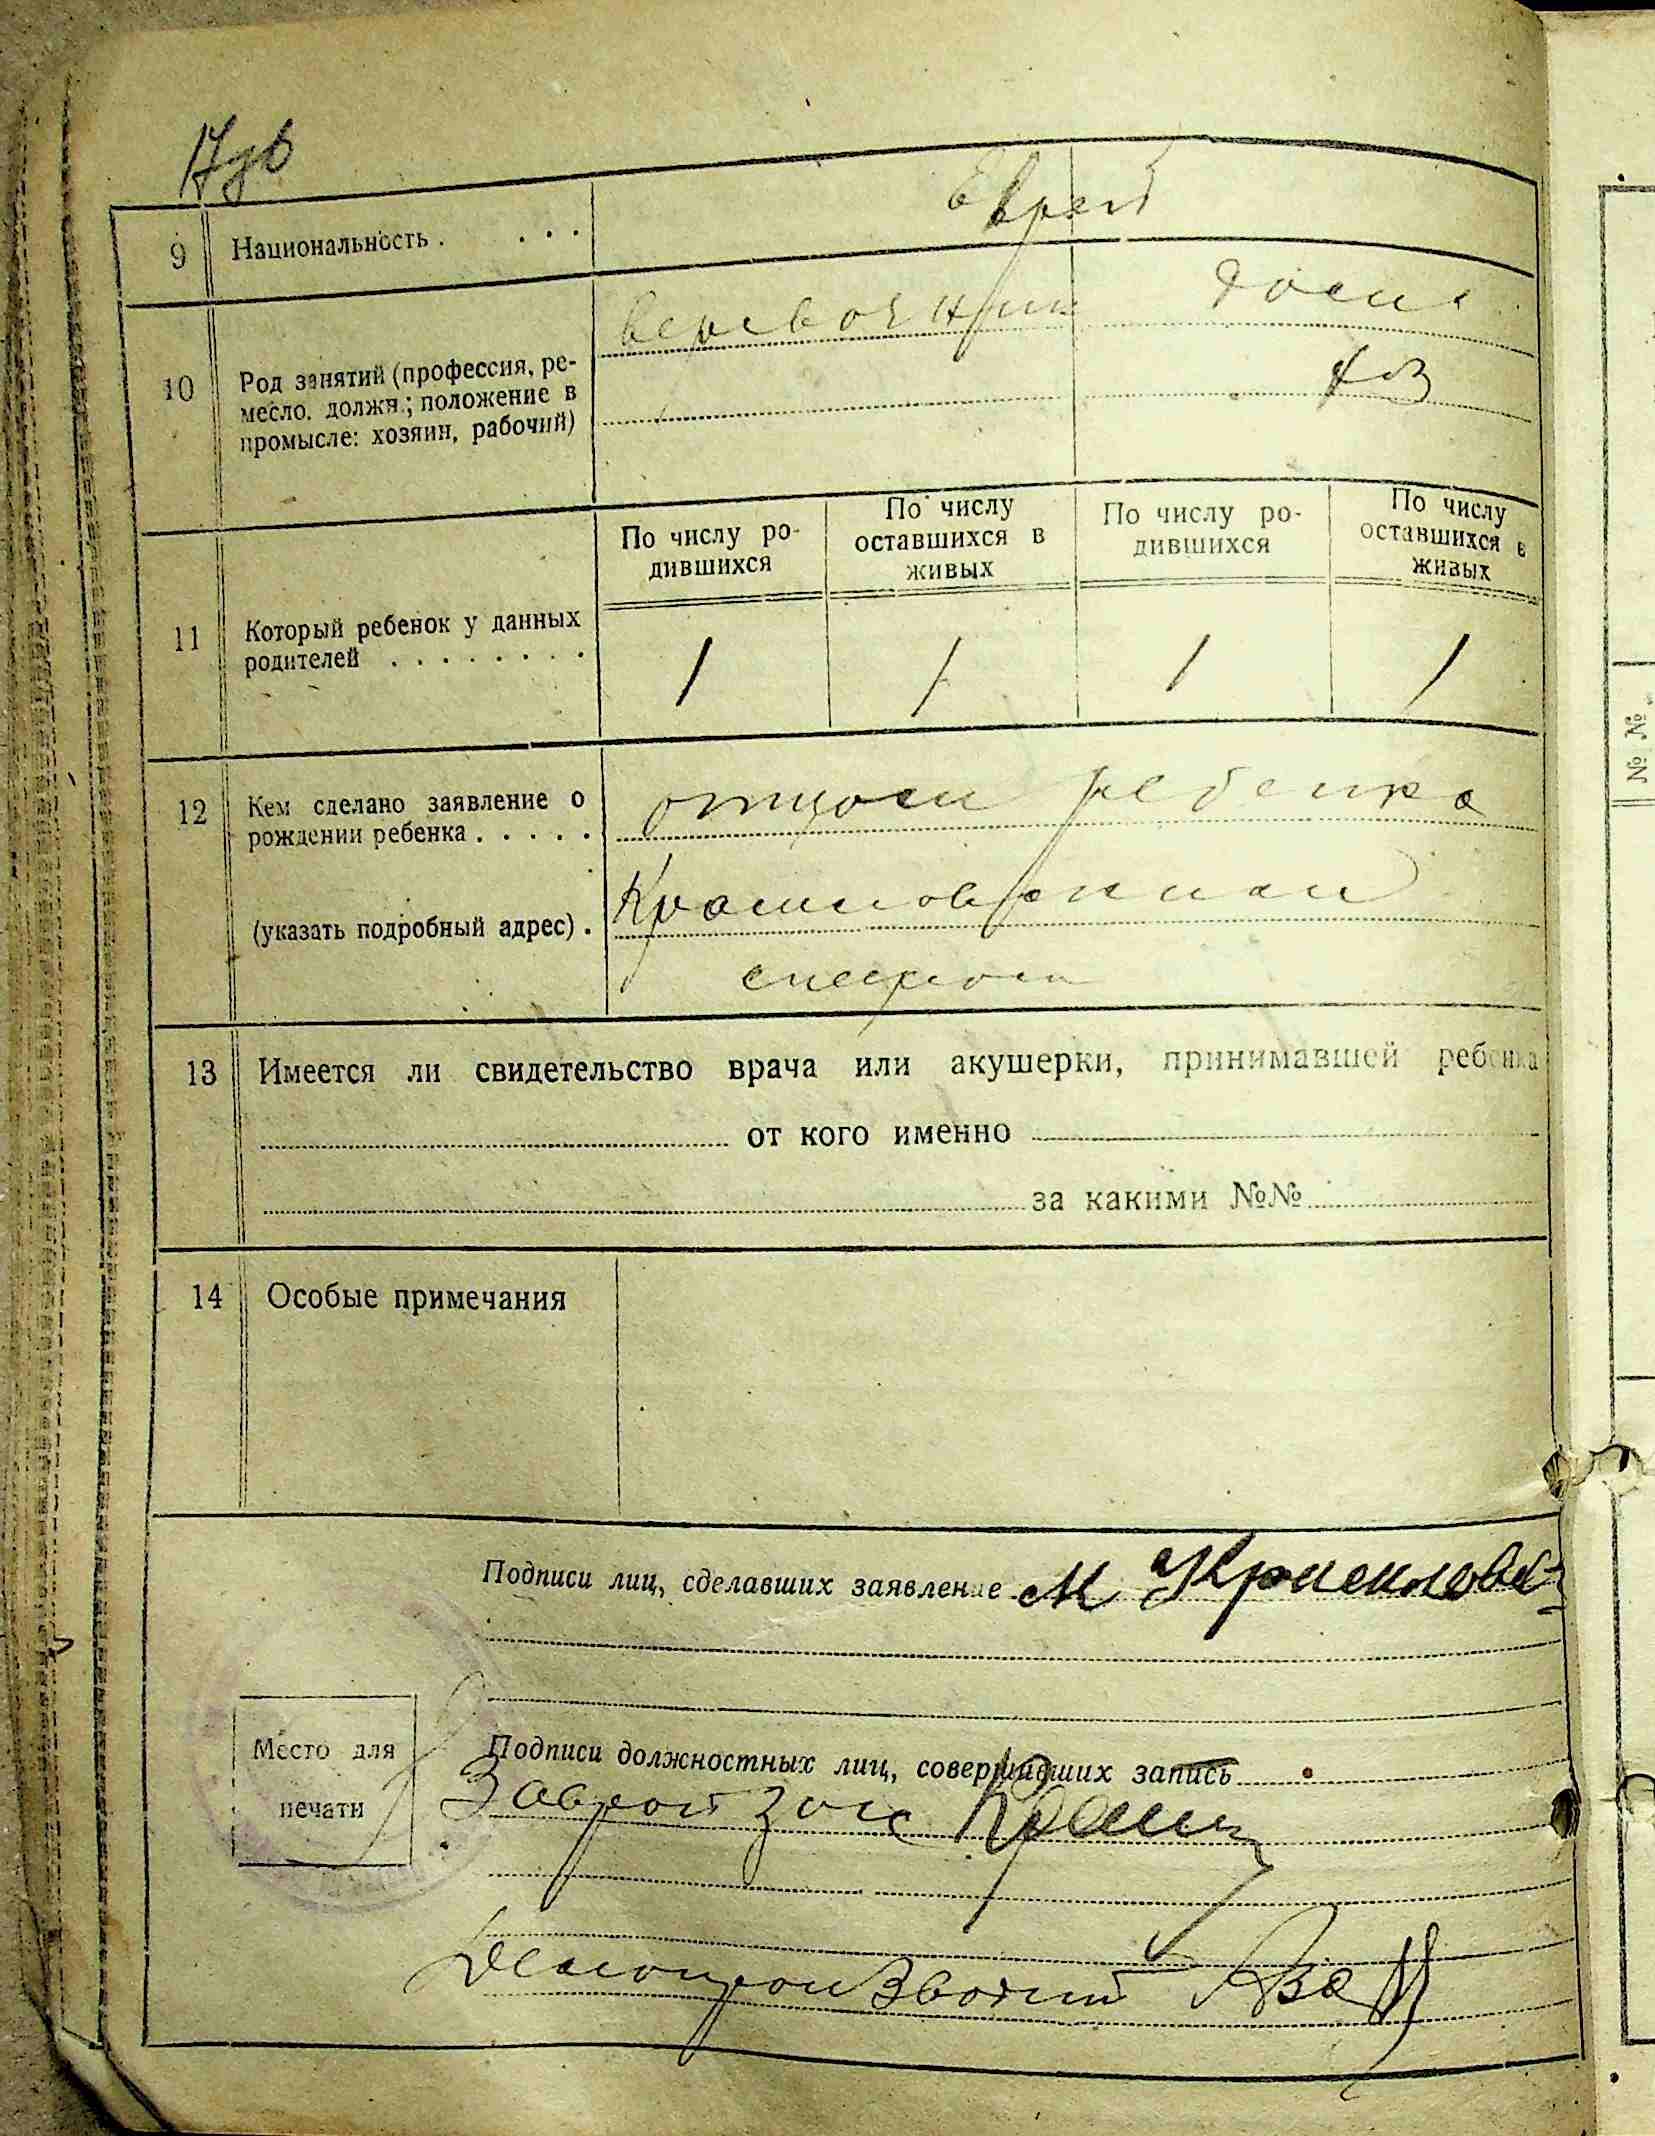 17об
9 Национальность . . . . Еврей
10 Род занятий (профессия, ре-
месло, должн.; положение в
промысле: хозяин, рабочий)
веревочник дома
хоз
По числу ро-
дившихся
По числу
оставшихся в
живых
По числу ро-
дившихся
По числу
оставшихся в
живых
11 Который ребенок у данных
родителей . . . . . . . .
1 1 1 1
12 Кем сделано заявление о
рождении ребенка . . . . .
отцом ребенка
(указать подробный адрес) .
13 Имеется ли свидетельство врача или акушерки, принимавшей ребенка
от кого именно
за какими №№
14 Особые примечания
Подписи лиц, сделавших заявление М
Место для
печати
Подписи должностных лиц, совершивших запись
Заврайзагс
Делопроизводит
№ №